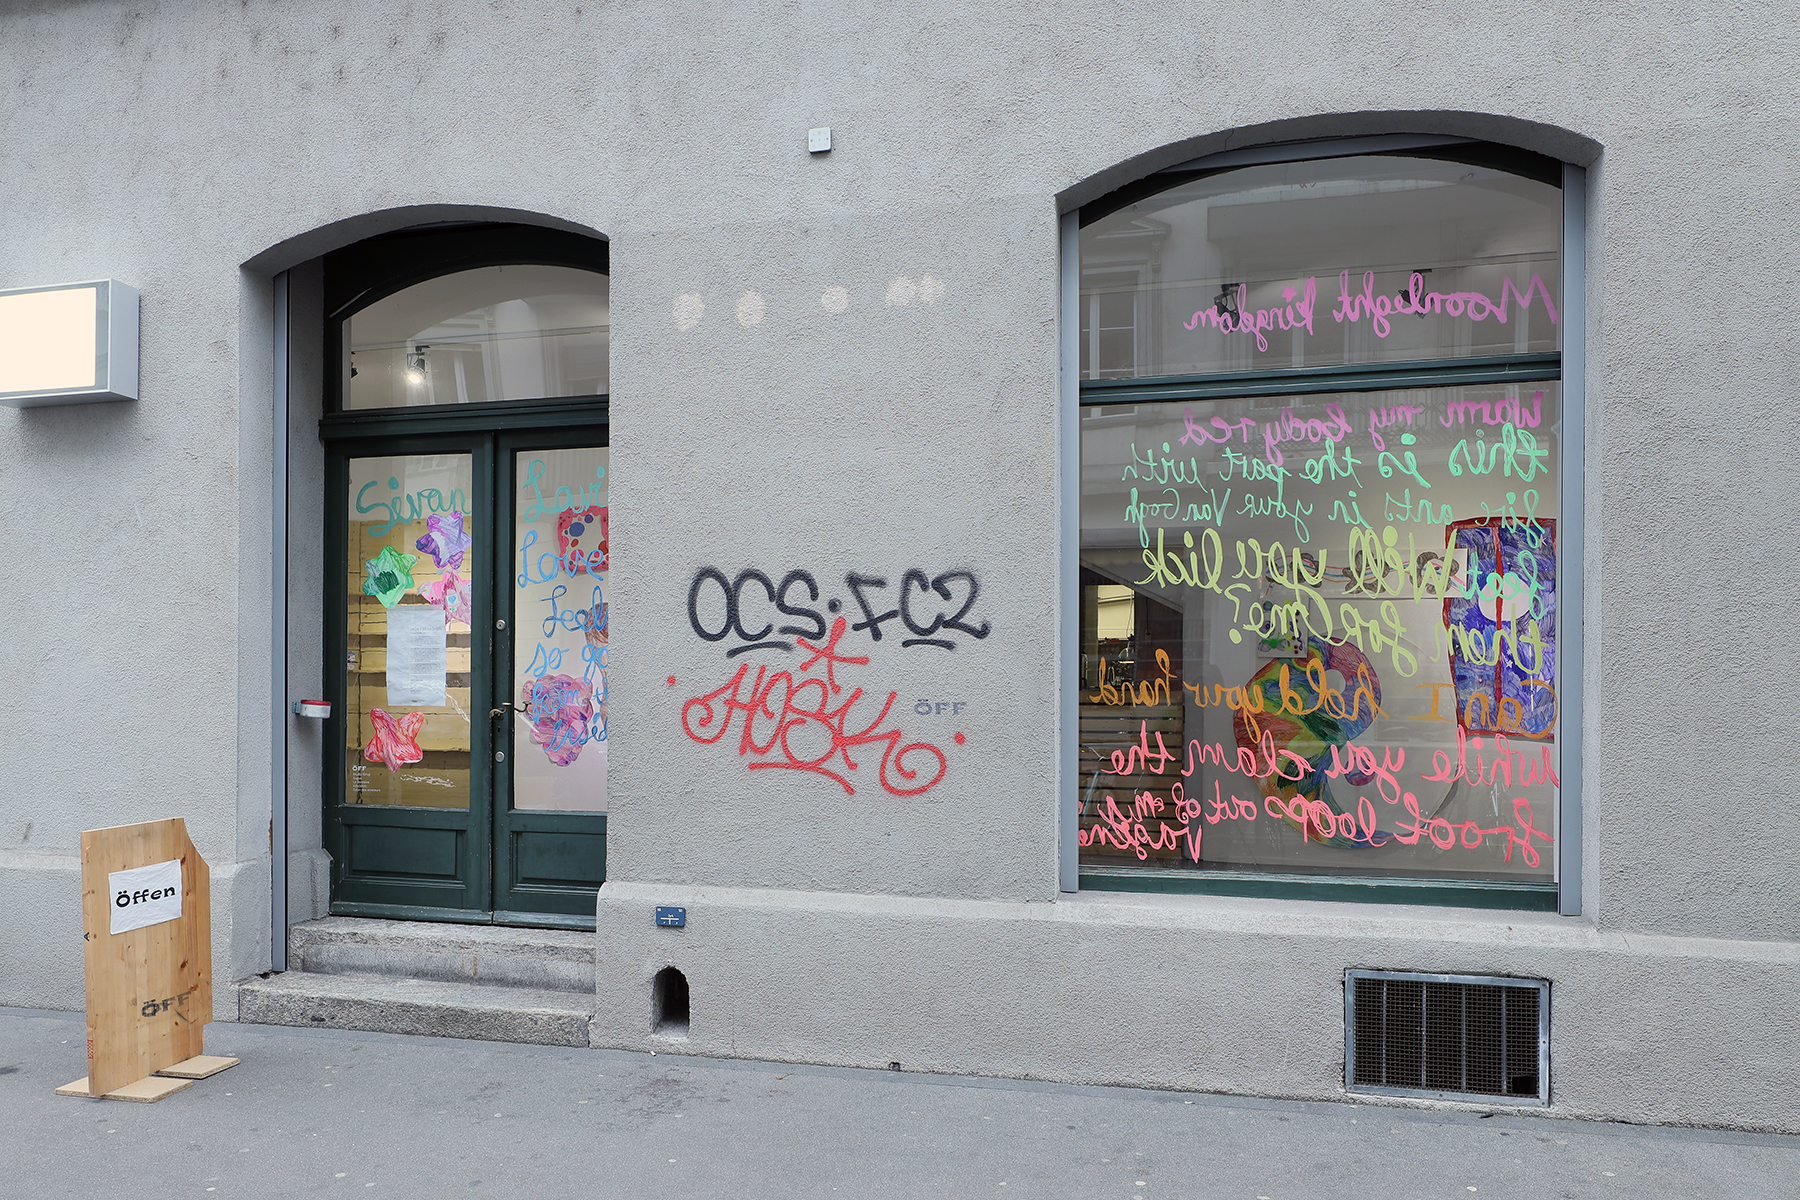 Sivan
Lavi
Love
Feel
so go
from th
ÖFF
OCS·FC2
HOSK
ÖFF
Öffen
ÖFF
Moonlight kingdom
warm my body red
this is the part with
fire ants in your Van Gogh
feet Will you lick
them for me?
Can I hold your hand
while you clam the
froot loops out of my
vagina